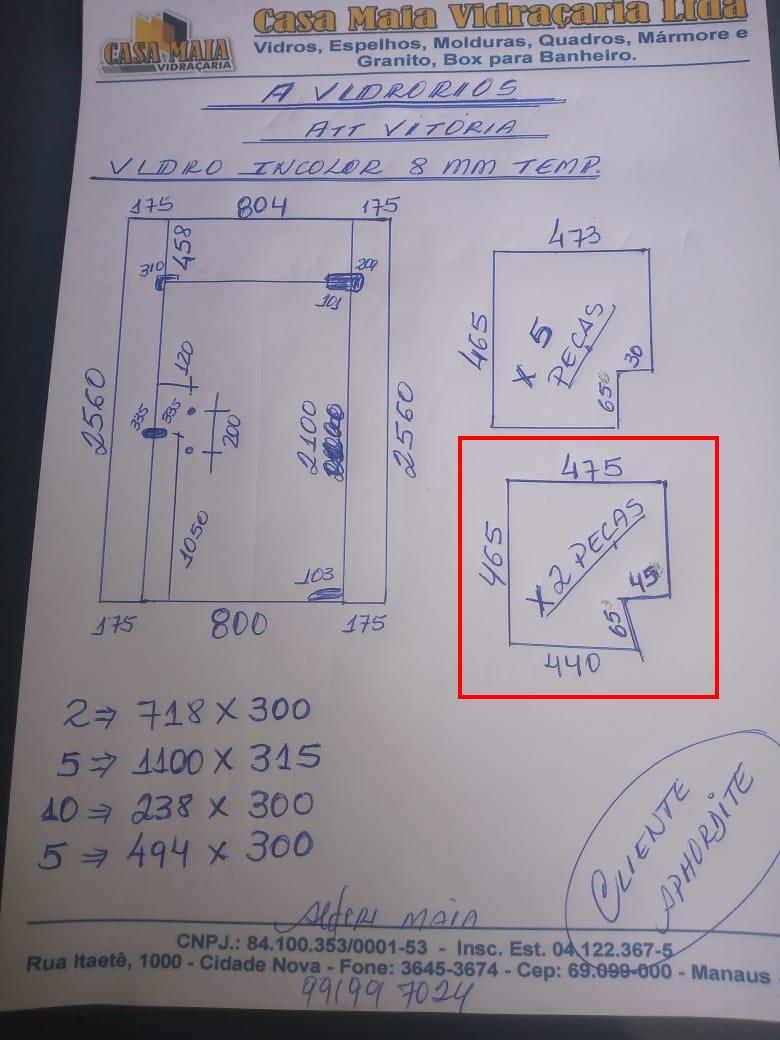 CASA MAIA
VIDRAÇARIA
Casa Maia Vidraçaria Ltda
Vidros, Espelhos, Molduras, Quadros, Mármore e
Granito, Box para Banheiro.
A VIDRORIOS
ATT VITÓRIA
VIDRO INCOLOR 8 MM TEMP.
175 804 175
458
310
101
120
335 335
200
2560
2100
2560
1050
103
175 800 175
473
465
X 5 PEÇAS
30
65
475
465
X 2 PEÇAS
45
65
440
2 ⇒ 718 X 300
5 ⇒ 1100 X 315
10 ⇒ 238 X 300
5 ⇒ 494 X 300
CLIENTE
APHORDITE
Alderi MAIA
CNPJ.: 84.100.353/0001-53 - Insc. Est. 04.122.367-5
Rua Itaetê, 1000 - Cidade Nova - Fone: 3645-3674 - Cep: 69.099-000 - Manaus
99199 7024